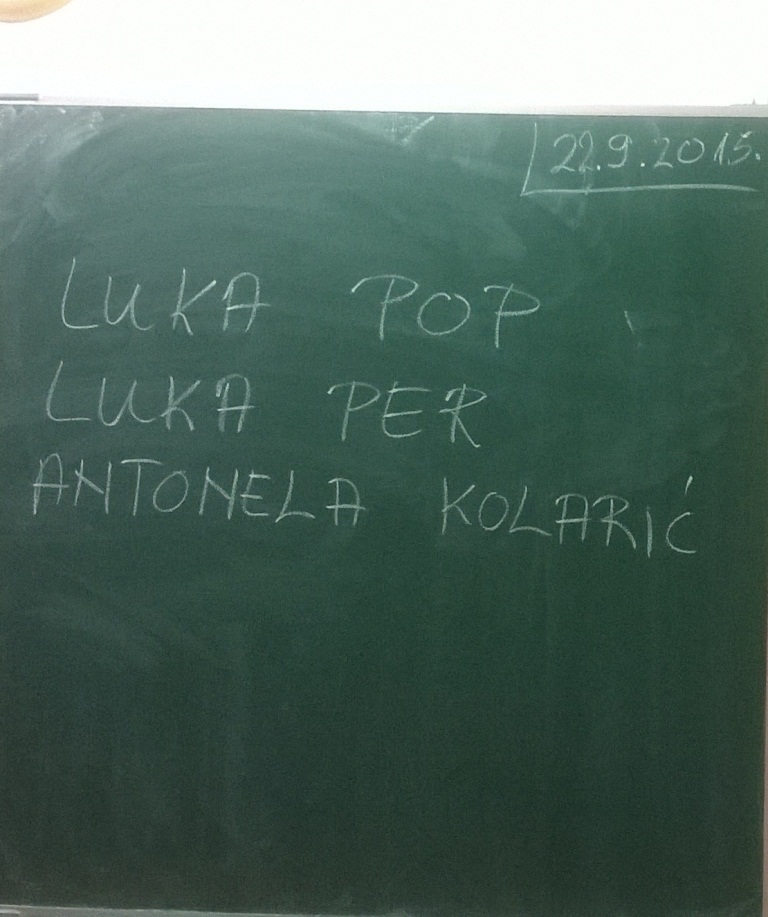 22.9.2015.
LUKA POP
LUKA PER
ANTONELA KOLARIĆ